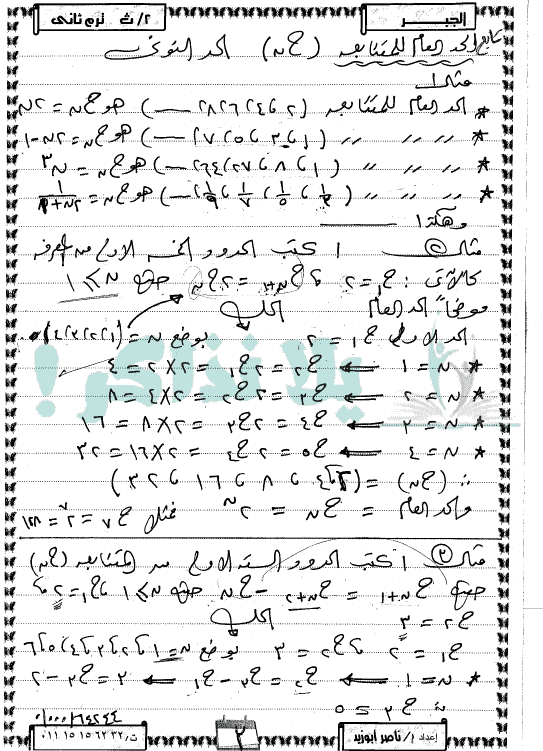 الجبر
٢/ث ترم ثانى
تابع الحد العام للمتتابعة (ح ن) الحد النونى
مثال ١
* الحد العام للمتتابعة (٢، ٤، ٦، ٨، ـــ) هو ح ن = ٢ن
* // // // (١، ٣، ٥، ٧، ـــ) هو ح ن = ٢ن - ١
* // // // (١، ٨، ٢٧، ٦٤، ـــ) ح ن = ن٣
* // // // (١/٣، ١/٥، ١/٧، ١/٩، ـــ) هو ح ن = ١/(٢ن+١)
وهكذا
مثال ٢ اكتب الحدود الخمسة الأولى من
كالآتى : ح١ = ٢ ، ح ن+١ = ٢ ح ن حيث ن ≥ ١
موضحاً الحد العام الحل
الحد الأول ح١ = ٢ بوضع ن = (١، ٢، ٣، ٤)
* ن = ١ ⟸ ح٢ = ٢ ح١ = ٢×٢ = ٤
* ن = ٢ ⟸ ح٣ = ٢ ح٢ = ٢×٤ = ٨
* ن = ٣ ⟸ ح٤ = ٢ ح٣ = ٢×٨ = ١٦
* ن = ٤ ⟸ ح٥ = ٢ ح٤ = ٢×١٦ = ٣٢
∴ (ح ن) = (٢، ٤، ٨، ١٦، ٣٢)
والحد العام = ح ن = ٢ن فمثلا ح٧ = ٢٧ = ١٢٨
مثال ٣ اكتب الحدود الستة الأولى من المتتابعة (ح ن)
حيث ح ن+١ = ح ن+٢ - ح ن حيث ن ≥ ١ ، ح١ = ٢ ،
ح٢ = ٣ الحل
ح١ = ٢ ، ح٢ = ٣ بوضع ن = ١، ٢، ٣، ٤، ٥، ٦
* ن = ١ ⟸ ح٢ = ح٣ - ح١ ⟸ ٣ = ح٣ - ٢
∴ ح٣ = ٥
يلا نذاكر!
إعداد أ/ ناصر أبوزيد
٢